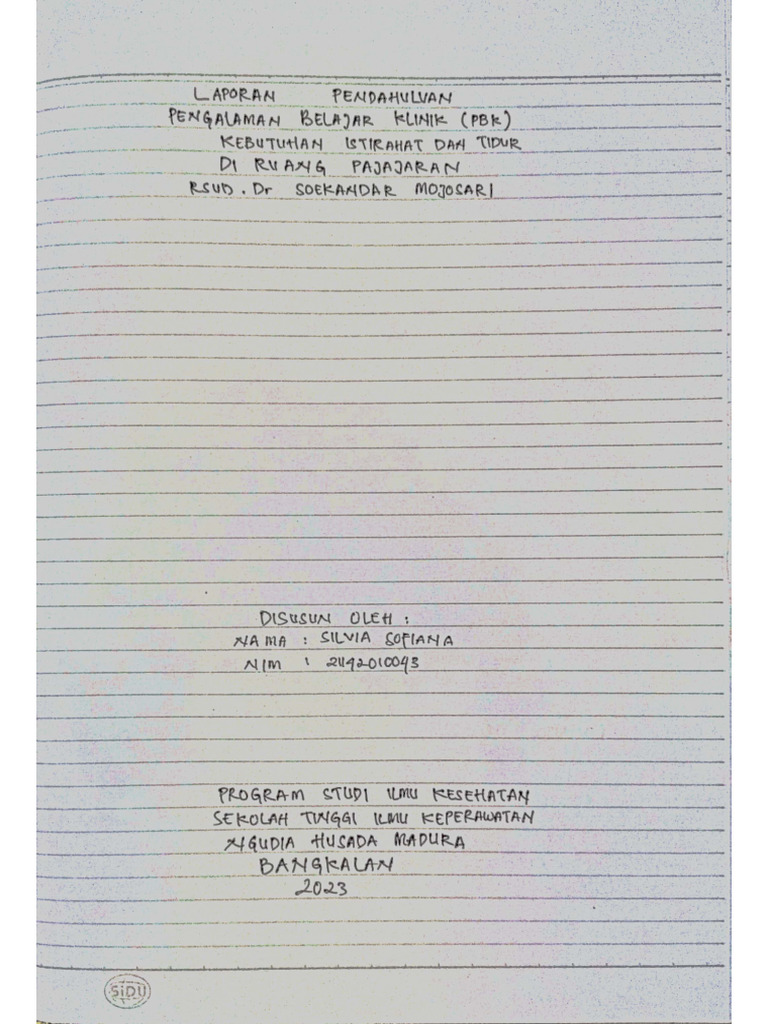 LAPORAN PENDAHULUAN
PENGALAMAN BELAJAR KLINIK (PBK)
KEBUTUHAN ISTIRAHAT DAN TIDUR
DI RUANG PAJAJARAN
RSUD. Dr SOEKANDAR MOJOSARI
DISUSUN OLEH :
NAMA : SILVIA SOFIANA
NIM : 21142010043
PROGRAM STUDI ILMU KESEHATAN
SEKOLAH TINGGI ILMU KEPERAWATAN
NGUDIA HUSADA MADURA
BANGKALAN
2023
SiDU